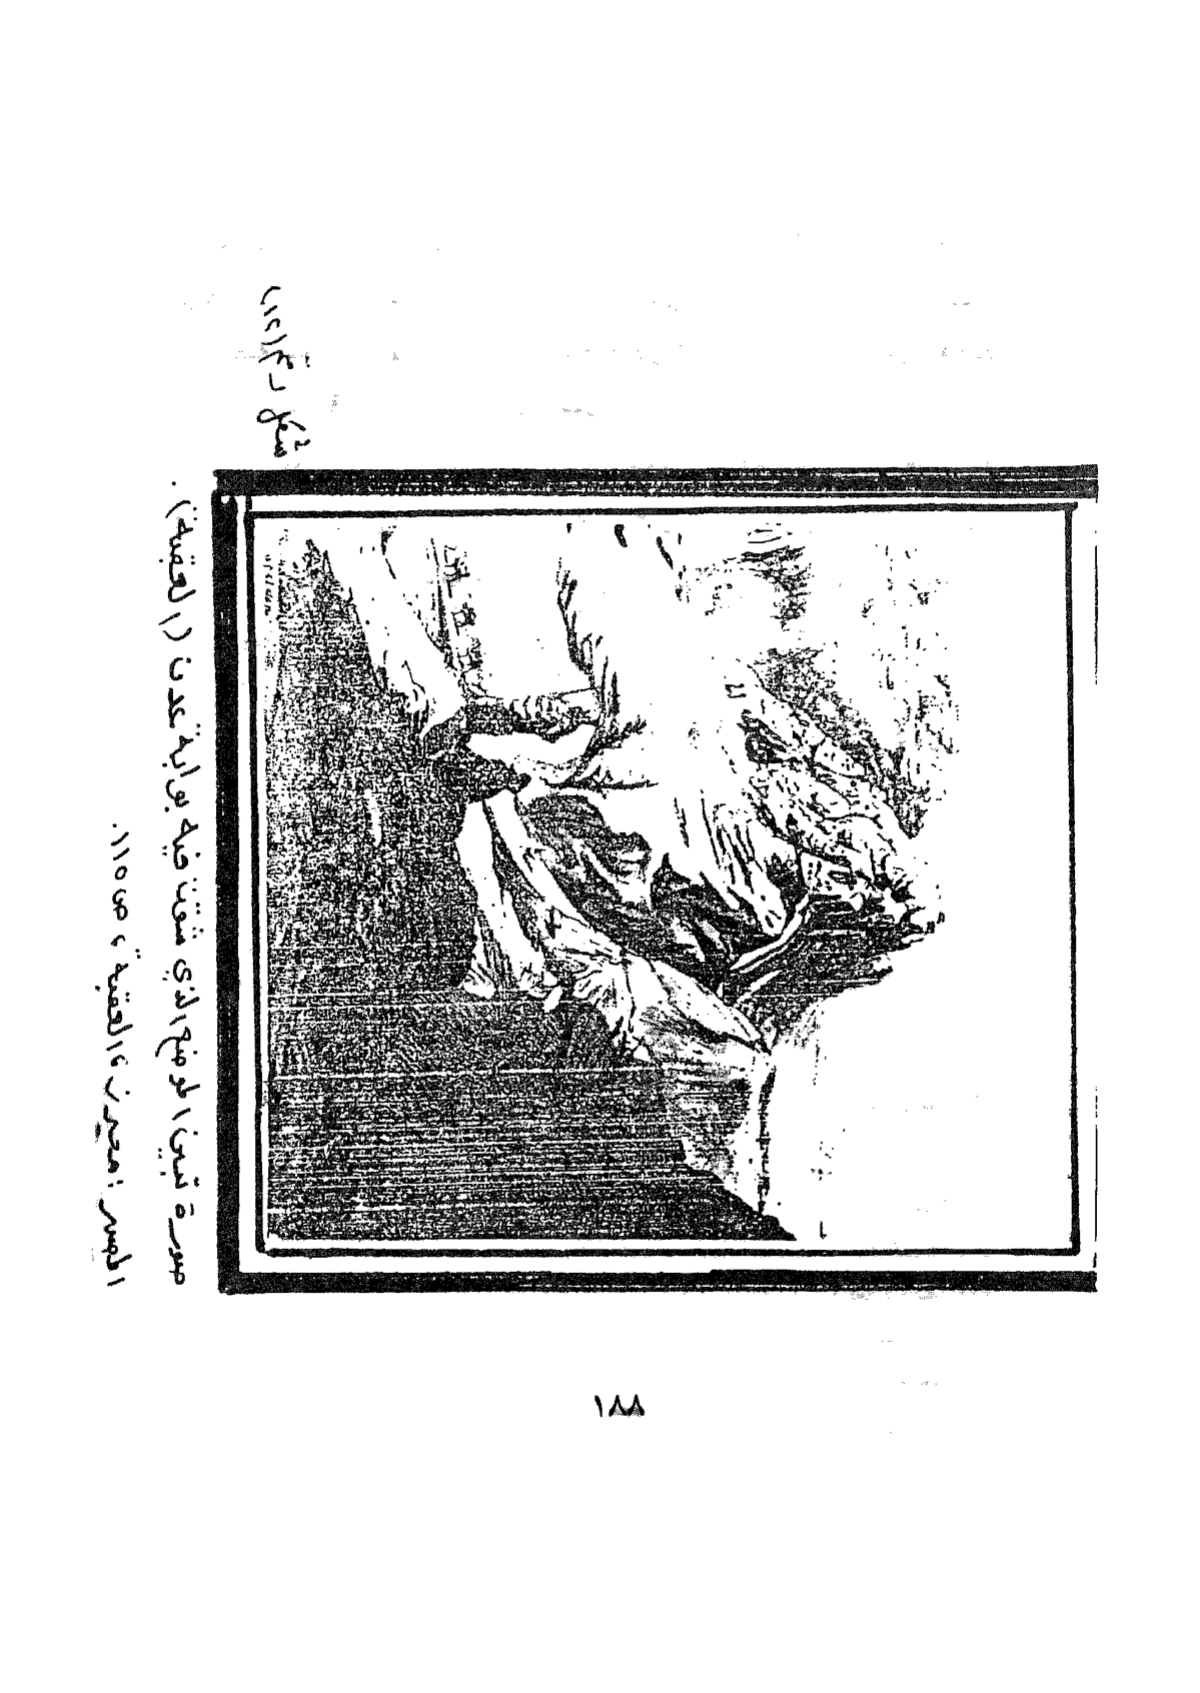 شكل رقم (١٢)
صورة تبين الموضع الذي شقت فيه بوابة عدن (العقبة).
المصدر: محيرز، العقبة، ص ١١٥.
١٨٨